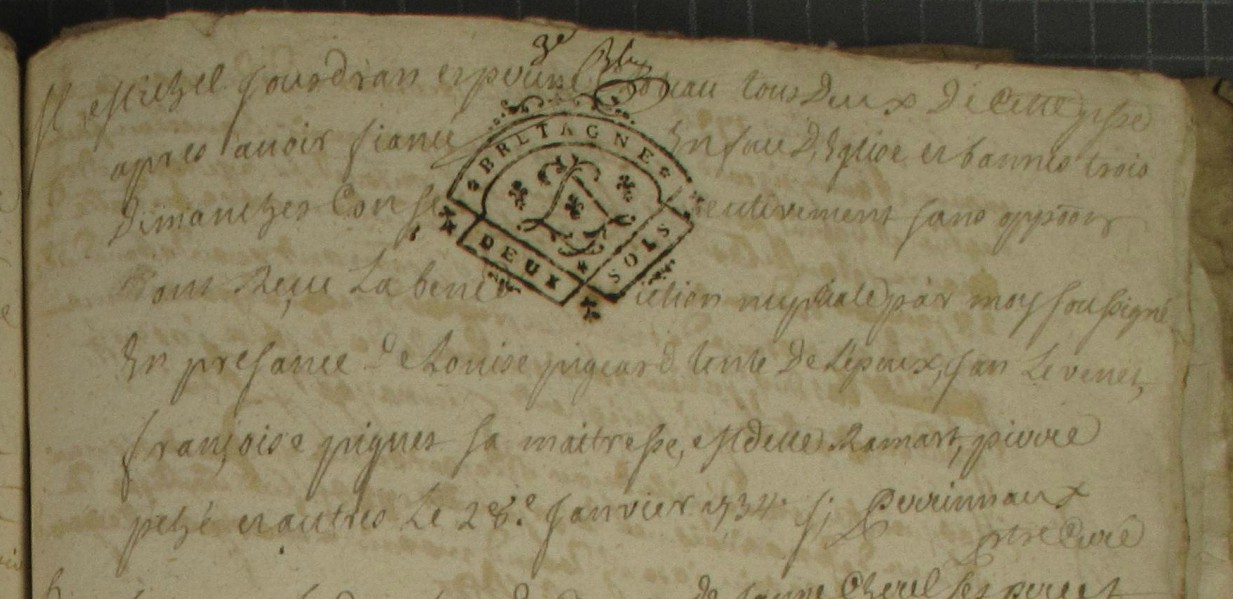 3e
Michel Jourdran et perrine tous Deux De Cette psse
apres avoir fiancé En face D'Eglise et bannies trois
BRETAGNE
Dimanches Consecutivement sans opposon
DEUX SOLS
Dont Reçu La benediction nuptiale par moy soussigné
En presance De Louise pigeard tente De Lepoux, jan Le venet,
françoise piguet sa maitresse, Mdelle Ramart, pierre
pezé et autres Le 28e Janvier 1734 Perrinnaux
ptre Curé
de Jeanne Cherel ses pere et